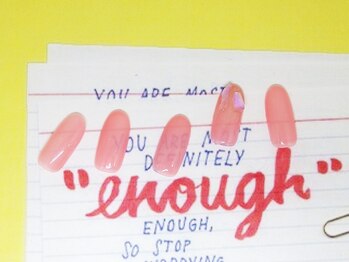 YOU ARE MOST
YOU ARE MOST
DEFINITELY
"enough"
ENOUGH,
SO STOP
WORRYING